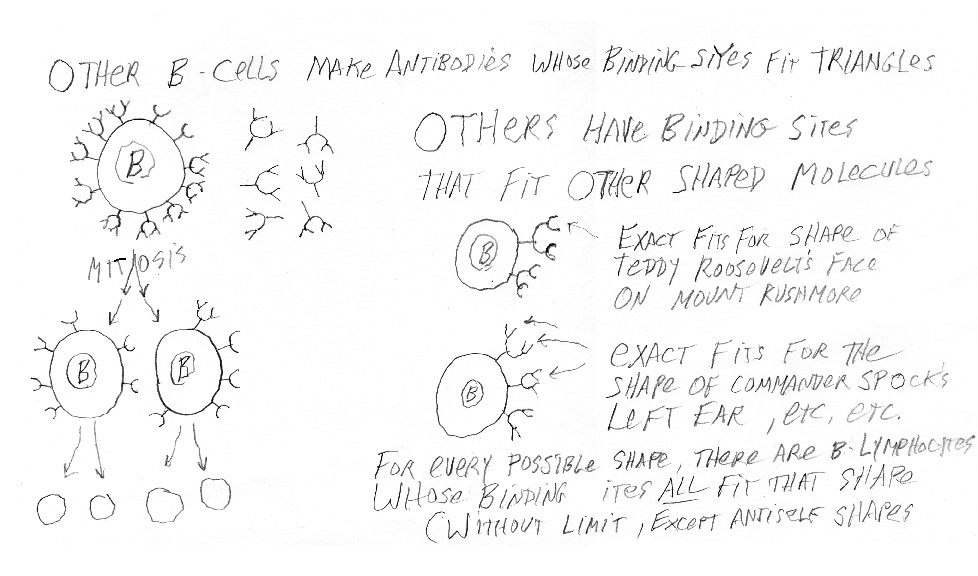 OTHER B-CELLS MAKE ANTIBODIES WHOSE BINDING SITES FIT TRIANGLES
OTHERS HAVE BINDING SITES
THAT FIT OTHER SHAPED MOLECULES
B
B
EXACT FITS FOR SHAPE OF
TEDDY ROOSOVELT'S FACE
ON MOUNT RUSHMORE
MITOSIS
B
B
B
EXACT FITS FOR THE
SHAPE OF COMMANDER SPOCK'S
LEFT EAR, etc, etc.
FOR EVERY POSSIBLE SHAPE, THERE ARE B-LYMPHOCYTES
WHOSE BINDING ITES ALL FIT THAT SHAPE
(WITHOUT LIMIT, EXCEPT ANTISELF SHAPES